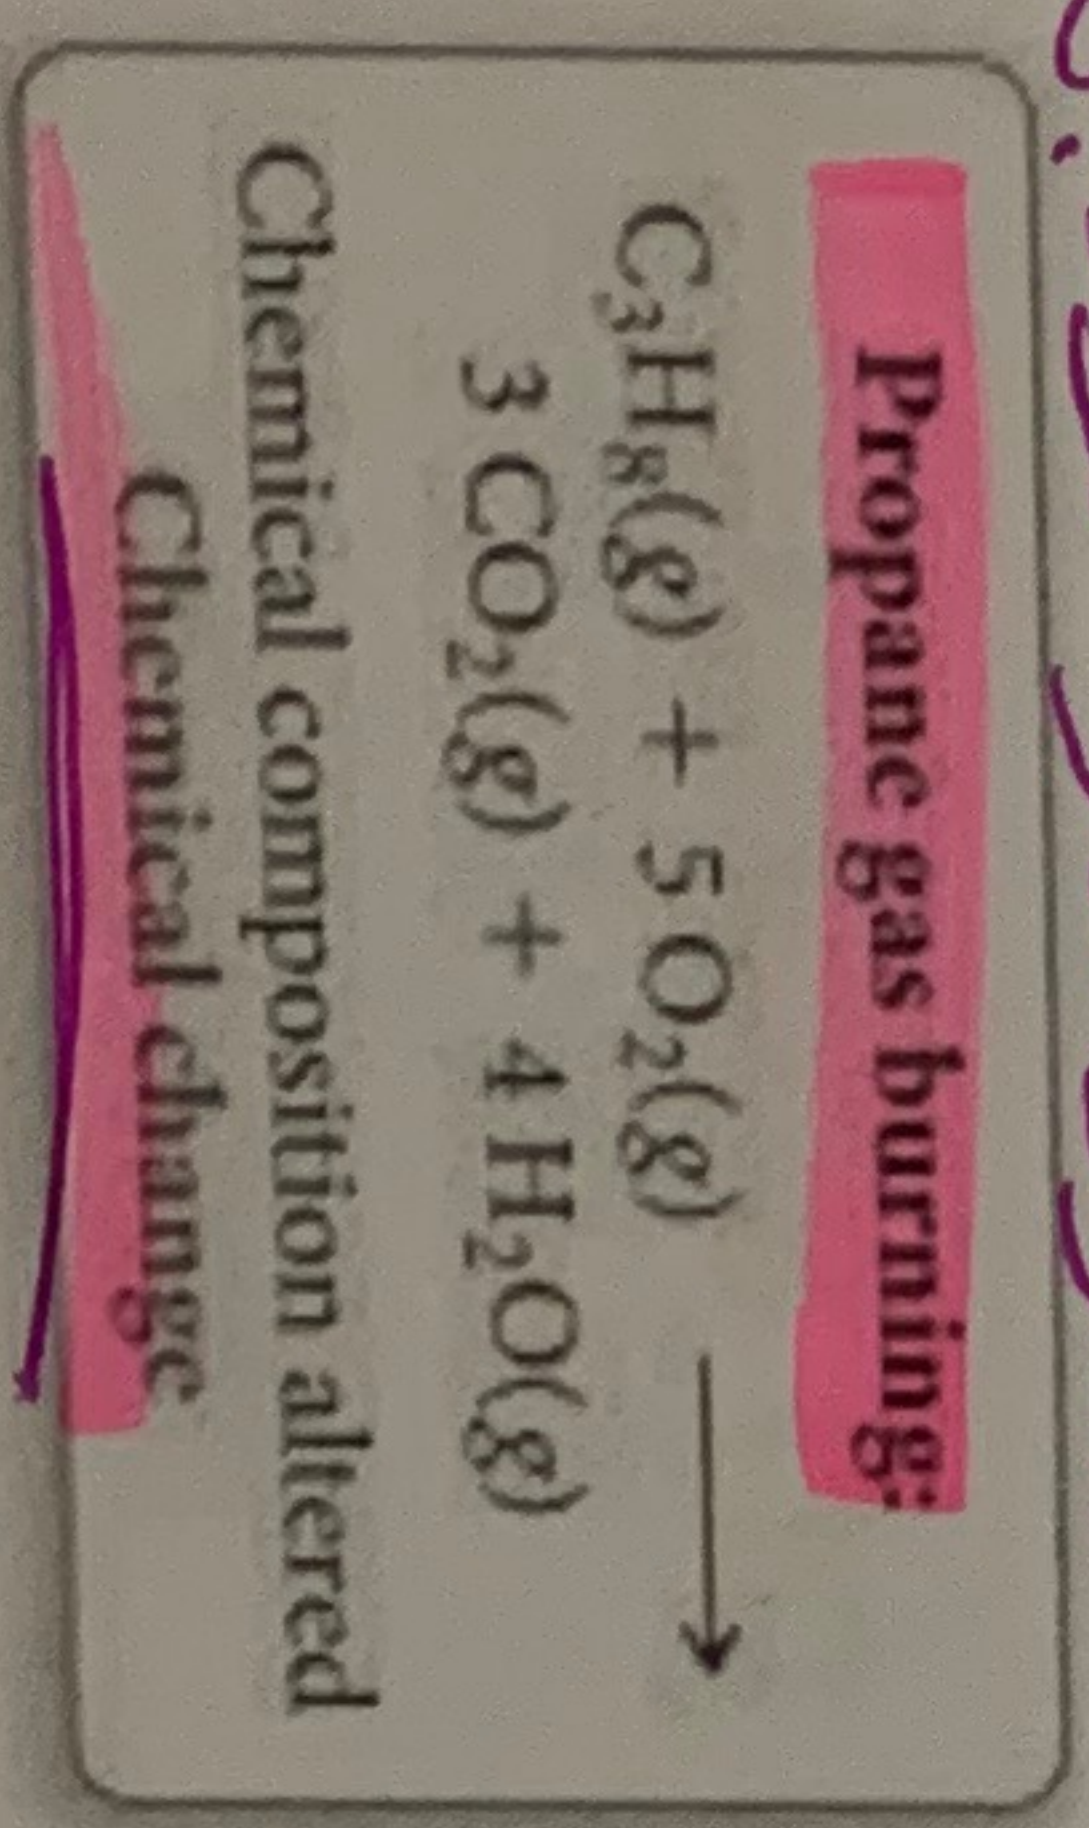 Propane gas burning:
C₃H₈(g) + 5 O₂(g) ⟶
3 CO₂(g) + 4 H₂O(g)
Chemical composition altered
Chemical change